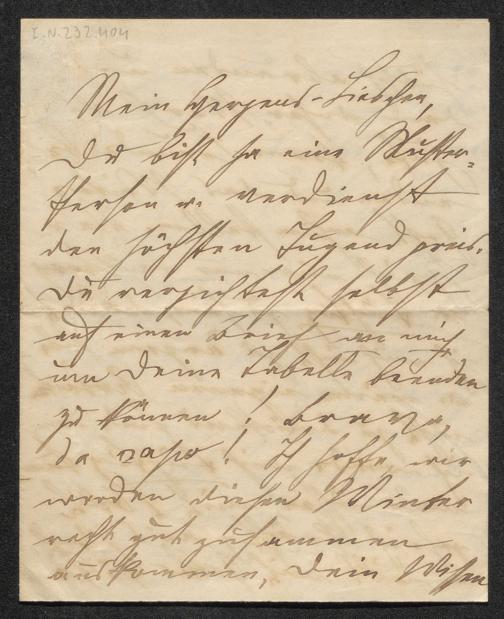 I.N. 232.404
Mein Herzens-Lieschen,
Du bist ja eine Muster-
Person u. verdienst
den höchsten Tugend preis.
Du verzichtest selbst
auf einen Brief an mich
um Deine Tabelle beenden
zu können! bravo,
da capo! Ich hoffe wir
werden diesen Winter
recht gut zusammen
auskommen, Dein